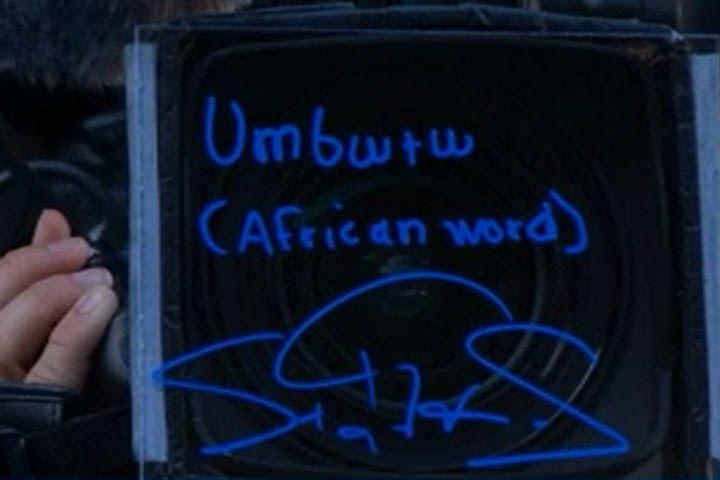 Umbwtw
(African word)